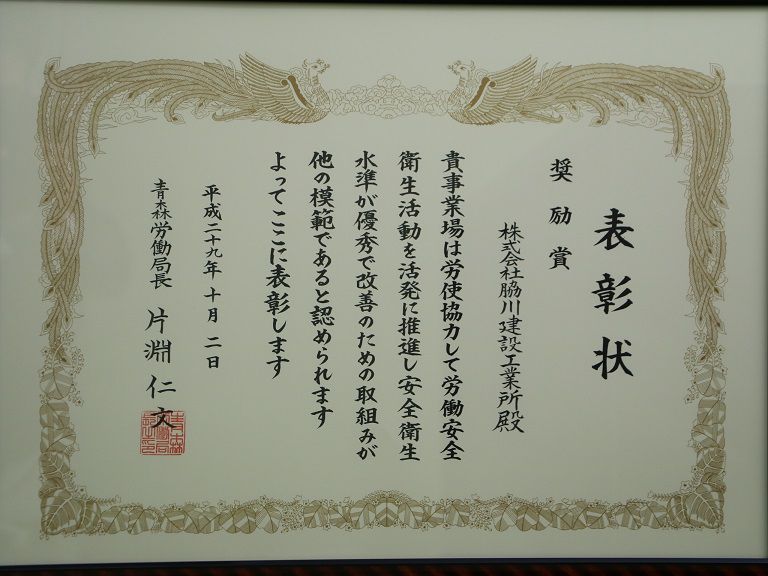 表彰状
奨励賞
株式会社脇川建設工業所殿
貴事業場は労使協力して労働安全
衛生活動を活発に推進し安全衛生
水準が優秀で改善のための取組みが
他の模範であると認められます
よってここに表彰します
平成二十九年十月二日
青森労働局長 片淵仁文